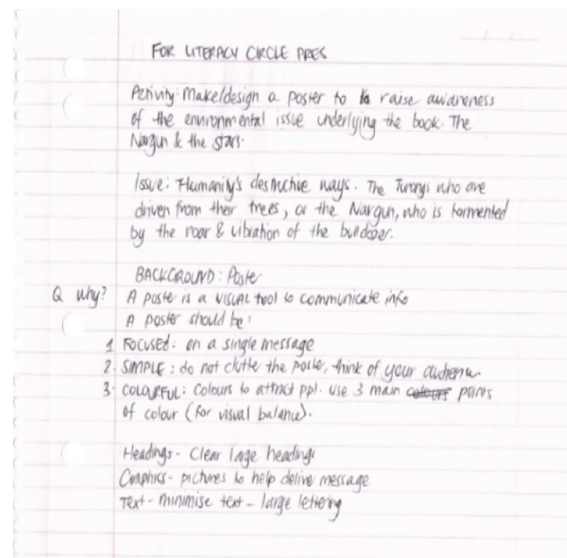 FOR LITERACY CIRCLE PRES
Activity: Make/design a poster to raise awareness
of the environmental issue underlying the book. The
Nargun & the stars.
Issue: Humanity's destructive ways. The Turongs who are
driven from their trees, or the Nargun, who is tormented
by the roar & vibration of the bulldozer.
BACKGROUND: Poster
Q why? A poster is a VISUAL tool to communicate info
A poster should be:
1 FOCUSED: on a single message
2. SIMPLE: do not clutter the poster, think of your audience.
3. COLOURFUL: Colours to attract ppl. Use 3 main colours points
of colour (for visual balance).
Headings - Clear large headings
Graphics - pictures to help deliver message
Text - minimise text - large lettering